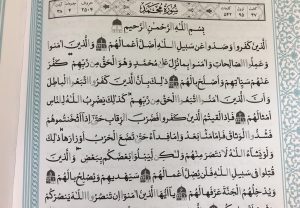 سُورَةُ مُحَمَّد
بِسْمِ اللَّهِ الرَّحْمَٰنِ الرَّحِيمِ
الَّذِينَ كَفَرُوا وَصَدُّوا عَنْ سَبِيلِ اللَّهِ أَضَلَّ أَعْمَالَهُمْ وَالَّذِينَ آمَنُوا
وَعَمِلُوا الصَّالِحَاتِ وَآمَنُوا بِمَا نُزِّلَ عَلَىٰ مُحَمَّدٍ وَهُوَ الْحَقُّ مِنْ رَبِّهِمْ كَفَّرَ
عَنْهُمْ سَيِّئَاتِهِمْ وَأَصْلَحَ بَالَهُمْ ذَٰلِكَ بِأَنَّ الَّذِينَ كَفَرُوا اتَّبَعُوا الْبَاطِلَ
وَأَنَّ الَّذِينَ آمَنُوا اتَّبَعُوا الْحَقَّ مِنْ رَبِّهِمْ كَذَٰلِكَ يَضْرِبُ اللَّهُ لِلنَّاسِ
أَمْثَالَهُمْ فَإِذَا لَقِيتُمُ الَّذِينَ كَفَرُوا فَضَرْبَ الرِّقَابِ حَتَّىٰ إِذَا أَثْخَنْتُمُوهُمْ
فَشُدُّوا الْوَثَاقَ فَإِمَّا مَنًّا بَعْدُ وَإِمَّا فِدَاءً حَتَّىٰ تَضَعَ الْحَرْبُ أَوْزَارَهَا ذَٰلِكَ
وَلَوْ يَشَاءُ اللَّهُ لَانْتَصَرَ مِنْهُمْ وَلَٰكِنْ لِيَبْلُوَ بَعْضَكُمْ بِبَعْضٍ وَالَّذِينَ
قُتِلُوا فِي سَبِيلِ اللَّهِ فَلَنْ يُضِلَّ أَعْمَالَهُمْ سَيَهْدِيهِمْ وَيُصْلِحُ بَالَهُمْ
وَيُدْخِلُهُمُ الْجَنَّةَ عَرَّفَهَا لَهُمْ يَا أَيُّهَا الَّذِينَ آمَنُوا إِنْ تَنْصُرُوا اللَّهَ يَنْصُرْكُمْ